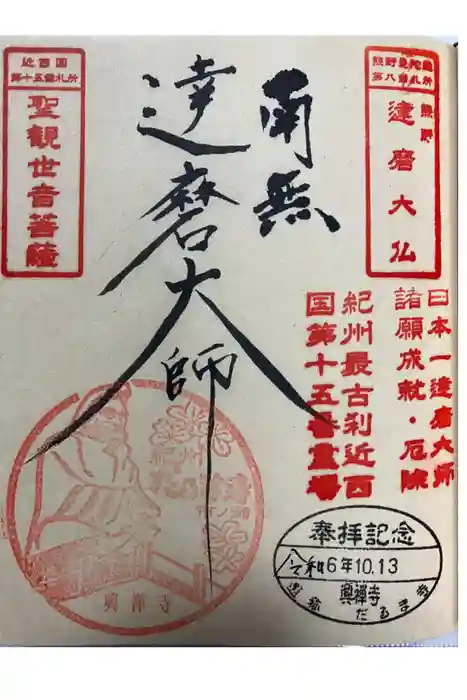 熊野曼陀羅
第八番札所
熊野
達磨大仏
日本一達磨大師
諸願成就・厄除
紀州最古刹近西
国第十五番霊場
南無
達磨大師
近西国
第十五番札所
聖観世音菩薩
奉拝記念
令和6年10.13
興禅寺
だる
興禅寺